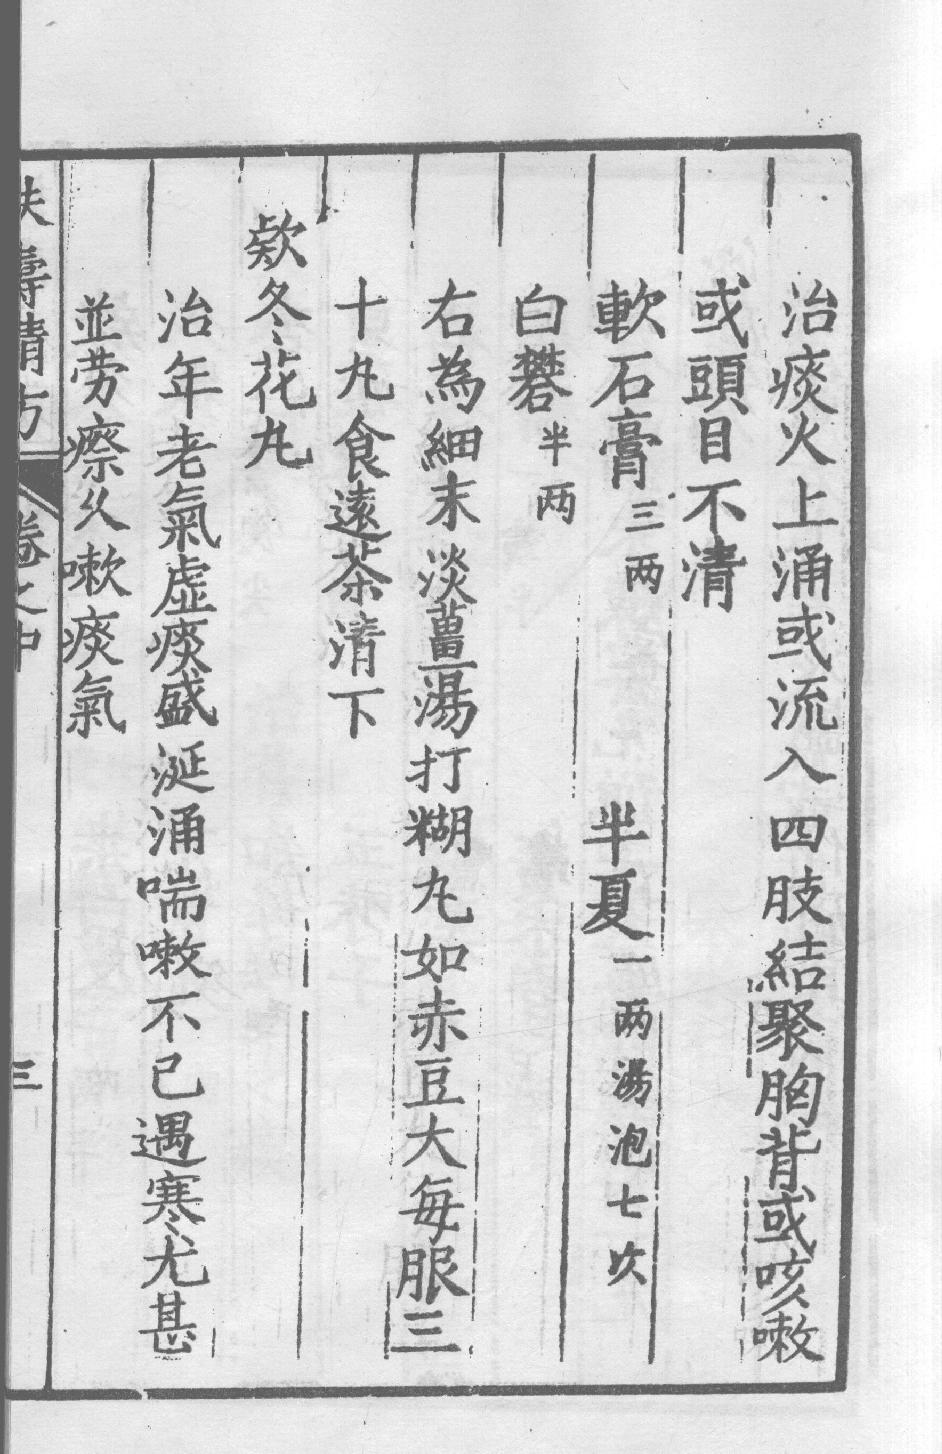 治痰火上涌或流入四肢結聚胸背或咳嗽
或頭目不清
軟石膏三两　半夏一两湯泡七次
白礬半两
右為細末淡薑湯打糊丸如赤豆大每服三
十丸食遠茶清下
欵冬花丸
治年老氣虛痰盛涎涌喘嗽不已遇寒尤甚
並劳瘵久嗽痰氣
扶壽精方　卷之中　三